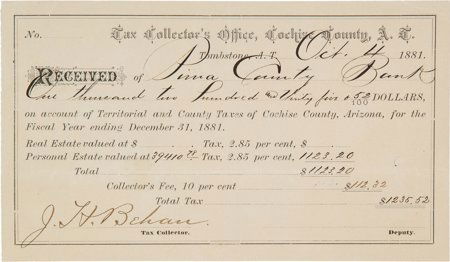 No. Tax Collector's Office, Cochise County, A. T.
Tombstone, A. T. Oct. 4 1881.
RECEIVED of Pima County Bank
One thousand two hundred and thirty five & 52/100 DOLLARS,
on account of Territorial and County Taxes of Cochise County, Arizona, for the
Fiscal Year ending December 31, 1881.
Real Estate valued at $ Tax, 2.85 per cent, $
Personal Estate valued at 39410 78 Tax, 2.85 per cent, 1123.20
Total $1123.20
Collector's Fee, 10 per cent $112.32
Total Tax $1235.52
J. H. Behan.
Tax Collector. Deputy.